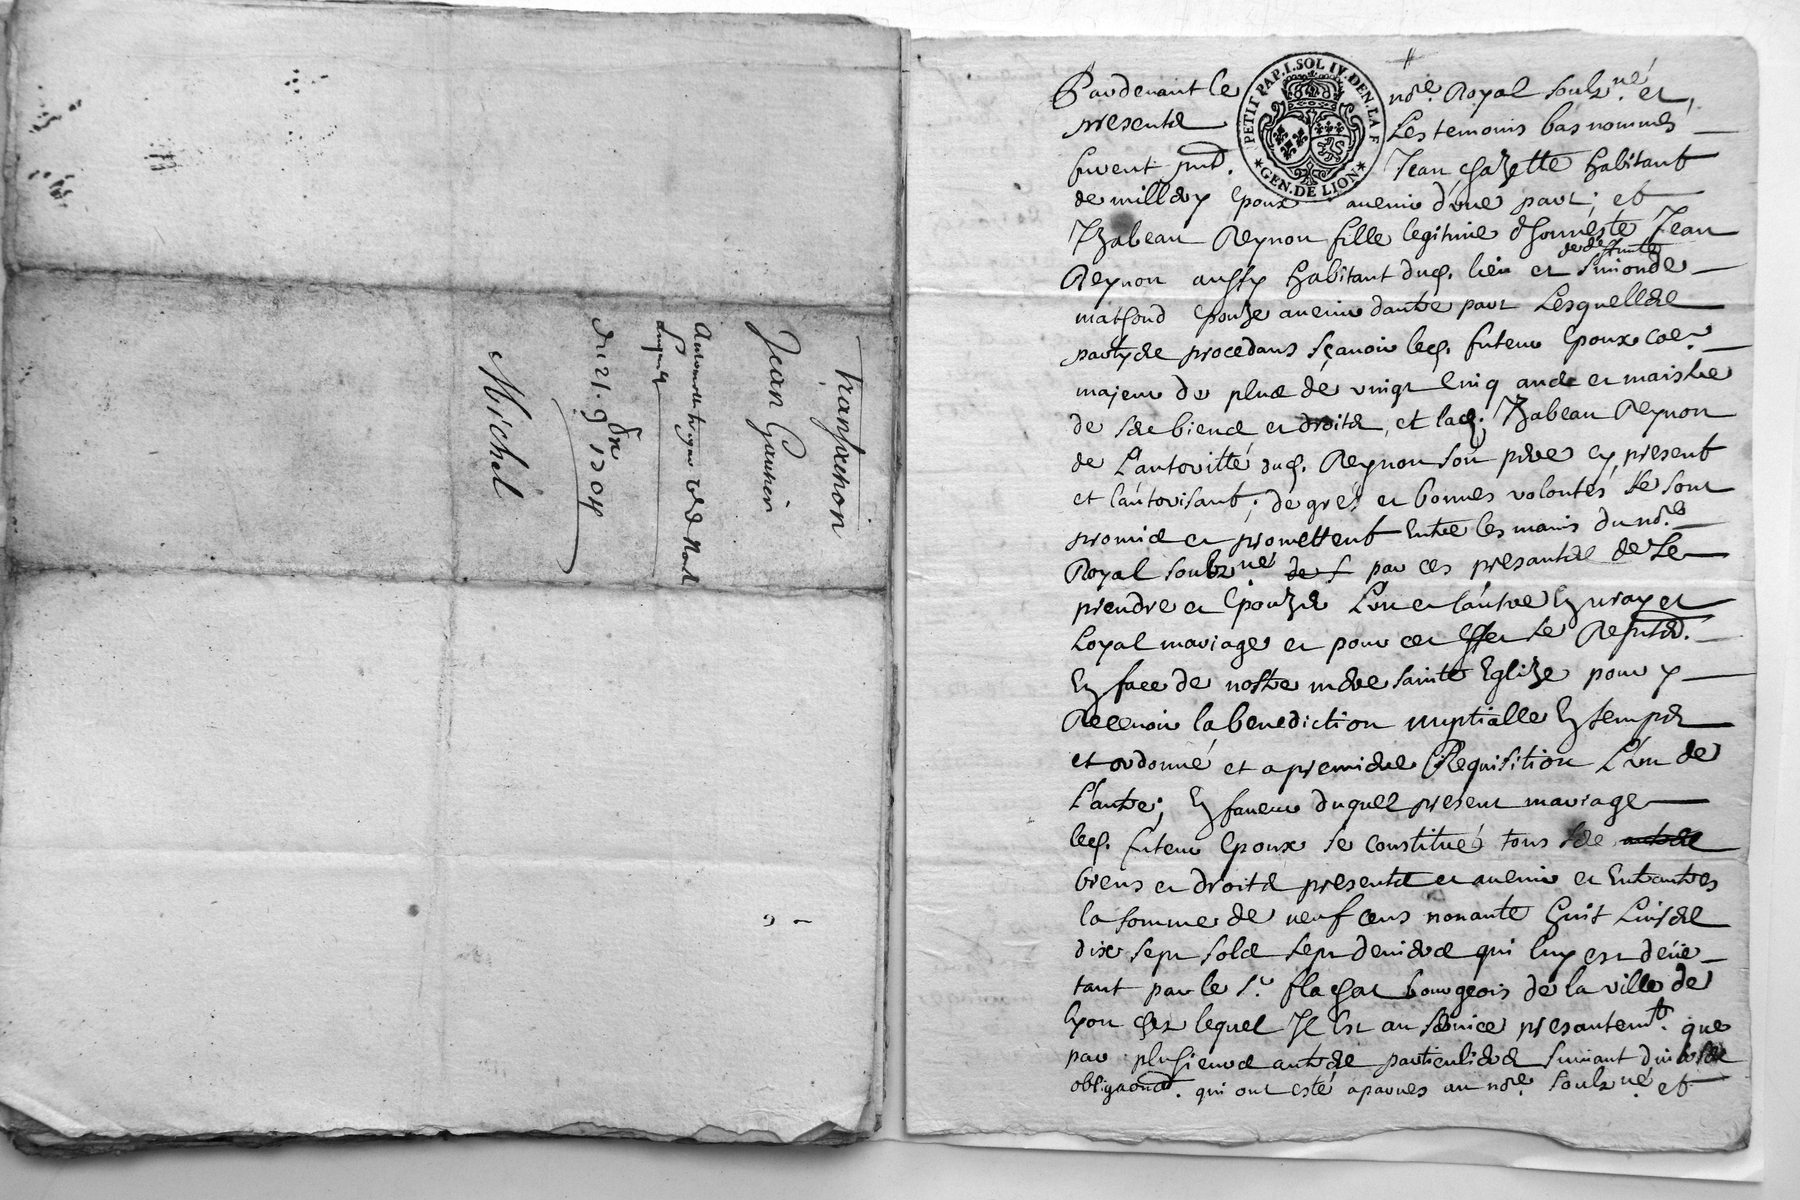 Transaction
Jean Gauthier
du 21. 9bre 1704
Michel
PETIT PAP. I. SOL IV. DEN. LA F
GEN. DE LION
Pardevant le nore. Royal soubz.né. et,
presents Les temoins bas nommés
furent pnts. Jean Chazette habitant
de millery Epoux avenir d'vne part; et
Izabeau Reynon fille legitime d'honneste Jean
de deffunte
Reynon aussy habitant dud. lieu et Simonde
mathoud Epouze avenir dautre part Lesquelles
partyes procedans sçavoir led. futeur Epoux coe.
majeur de plus de vingt Cinq ands et maistre
de ses biens et droits, et lad. Izabeau Reynon
de L'autorité dud. Reynon son pere cy present
et l'autorisant; de grés et bonnes volontés se sont
promis et promettent Entre les mains du nore.
Royal soubz.né par ces presantes de se
prendre et Epouzer L'vn et l'autre En vray et
Loyal mariage et pour cet Effet se Rep̃nter.
En face de nostre mere sainte Eglize pour y
Recevoir la benediction nuptialle En temps
et ordonné et a premiere Requisition L'vn de
L'autre; En faveur duquel present mariage
led. futeur Epoux se constitue tous ses
biens et droits presents et avenir et Entrautres
la somme de neuf cens nonante huit Livres
dix sept sols sept deniers qui luy est deüe
tant par le Sr. flachat bourgeois de la ville de
Lyon chez lequel Il Est au service presantemt. que
par plusieurs autres particuliers suivant diverses
obligaons. qui ont esté aparues au nore. soubz.né. et